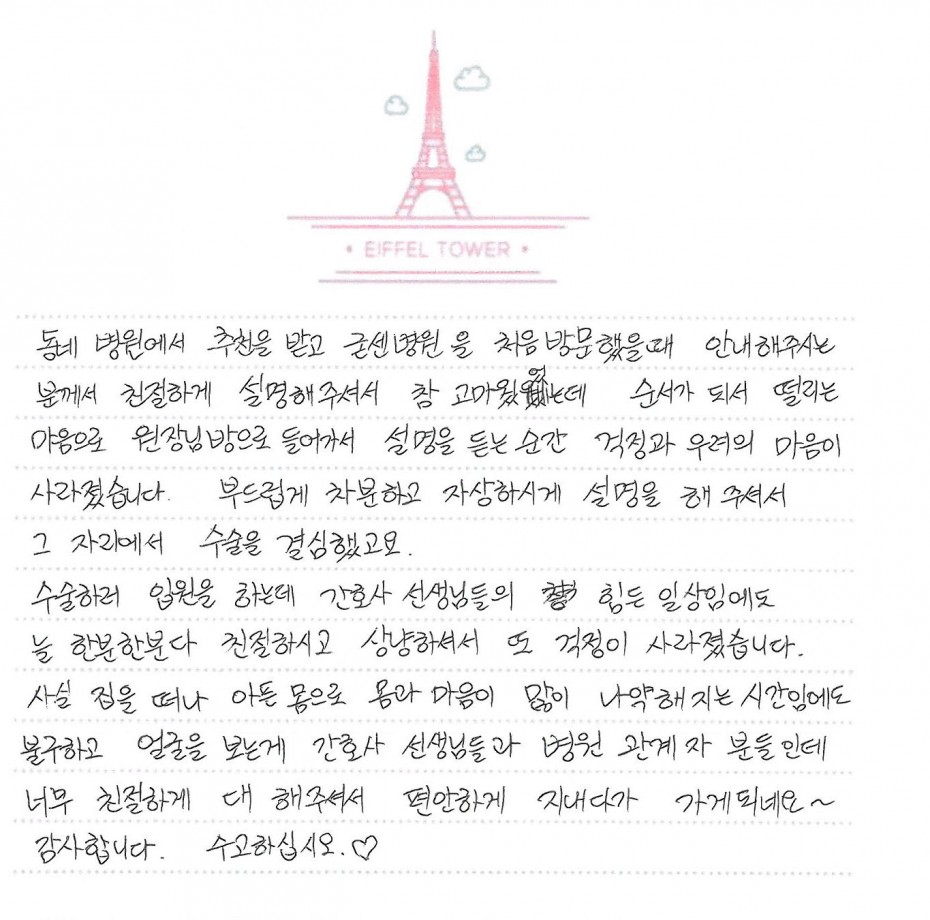 • EIFFEL TOWER •
동네 병원에서 추천을 받고 굳센병원 을 처음 방문했을때 안내해주시는
분께서 친절하게 설명해주셔서 참 고마웠는데 순서가 되서 떨리는
마음으로 원장님방으로 들어가서 설명을 듣는 순간 걱정과 우려의 마음이
사라졌습니다. 부드럽게 차분하고 자상하시게 설명을 해 주셔서
그 자리에서 수술을 결심했고요.
수술하러 입원을 하는데 간호사 선생님들의 힘든 일상임에도
늘 한분한분다 친절하시고 상냥하셔서 또 걱정이 사라졌습니다.
사실 집을 떠나 아픈 몸으로 몸과 마음이 많이 나약해 지는 시간임에도
불구하고 얼굴을 보는게 간호사 선생님들과 병원 관계자 분들인데
너무 친절하게 대 해주셔서 편안하게 지내다가 가게되네요~
감사합니다. 수고하십시오.♡